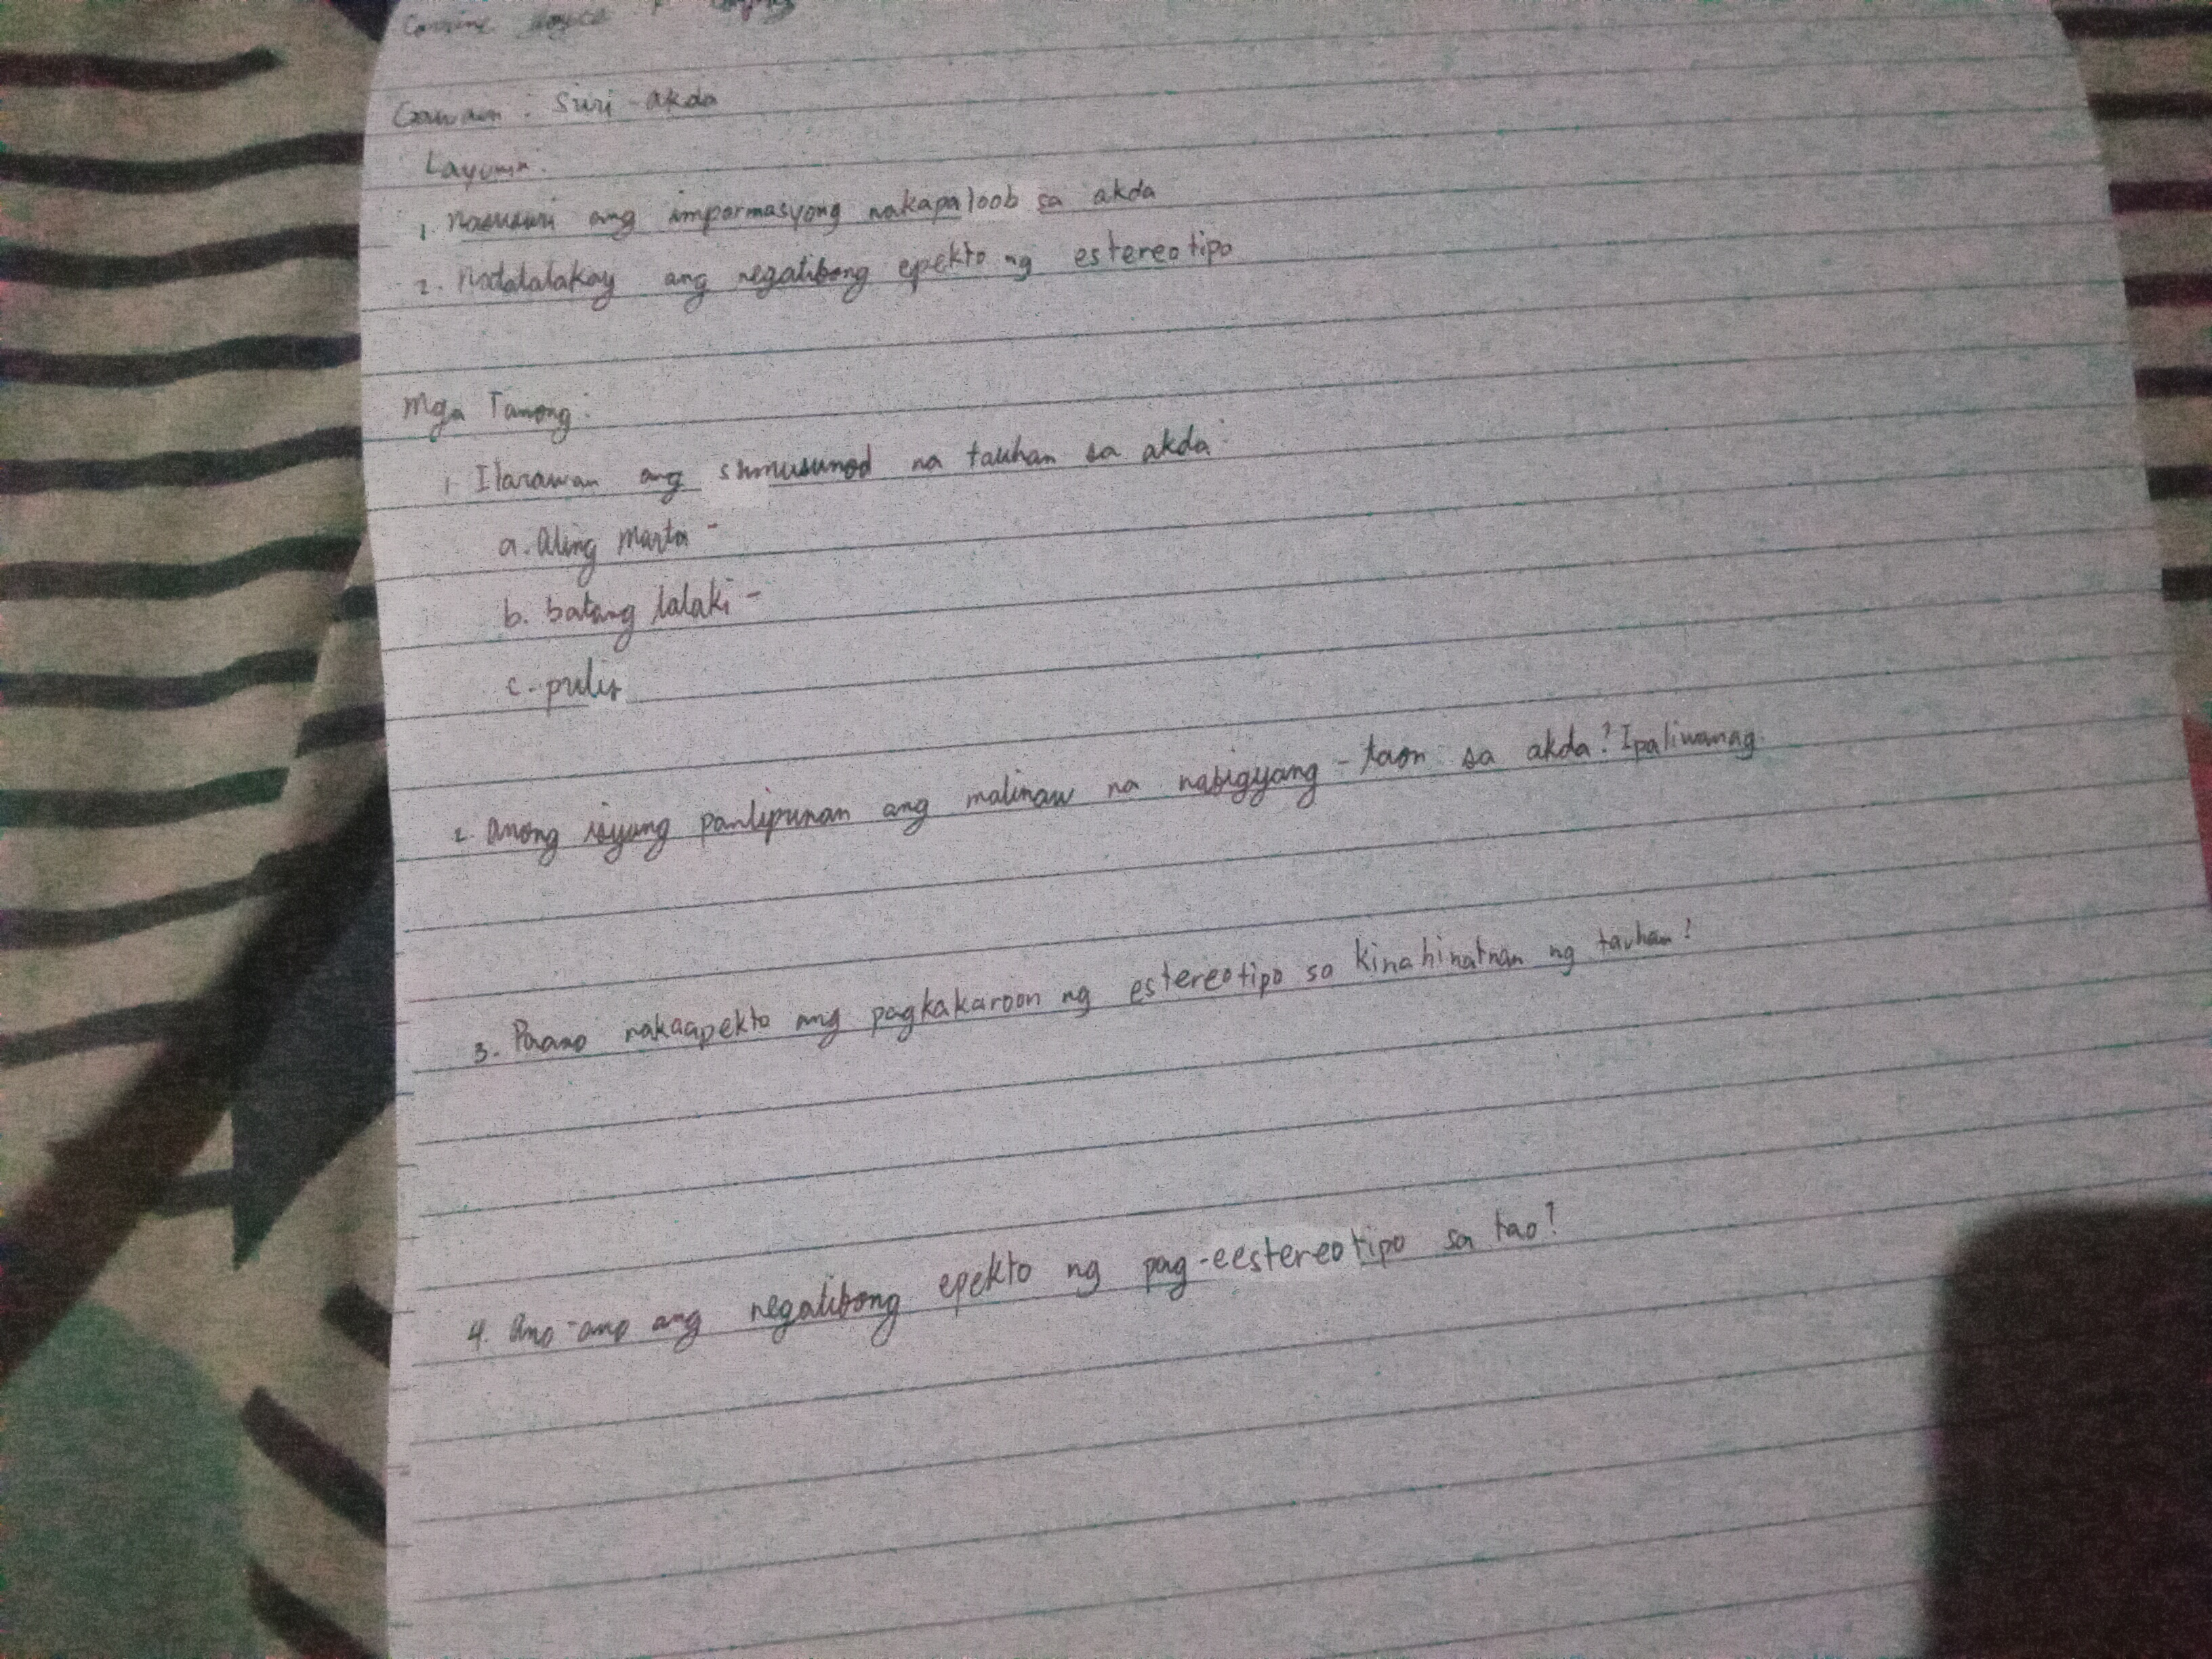 Gawain : Suri - akda
Layunin:
1. Nasusuri ang impormasyong nakapaloob sa akda
2. Natatalakay ang negatibong epekto ng estereotipo
Mga Tanong:
1. Ilarawan ang sumusunod na tauhan sa akda:
a. Aling Marta -
b. batang lalaki -
c. pulis
2. Anong isyung panlipunan ang malinaw na nabigyang - taon sa akda? Ipaliwanag.
3. Paano nakaapekto ang pagkakaroon ng estereotipo sa kinahinatnan ng tauhan?
4. Ano-ano ang negatibong epekto ng pag-eestereotipo sa tao?